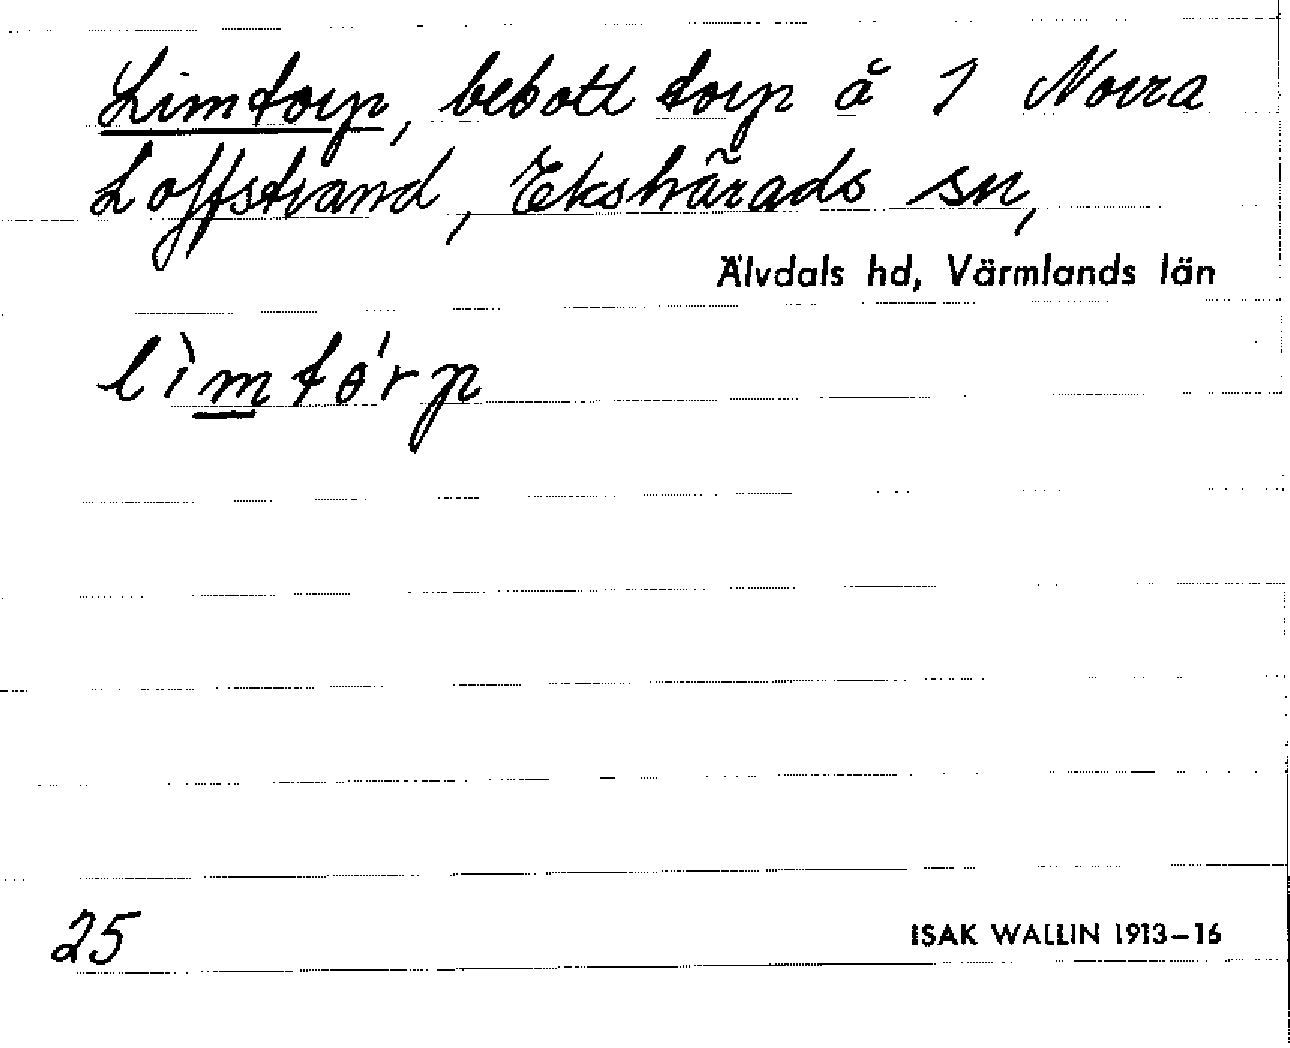 Limtorp, bebott torp å 1 Norra
Loffstrand, Ekshärads sn,
Älvdals hd, Värmlands län
lìmtɵ́rp
25
ISAK WALLIN 1913–16